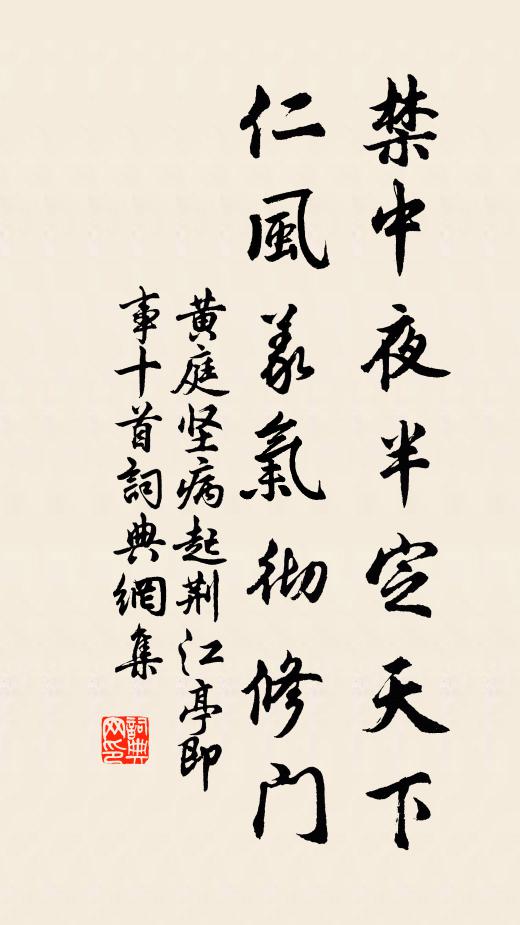 禁中夜半定天下
仁風義氣彻修门
黄庭坚病起荆江亭即
事十首詞典網集
詞典
网印